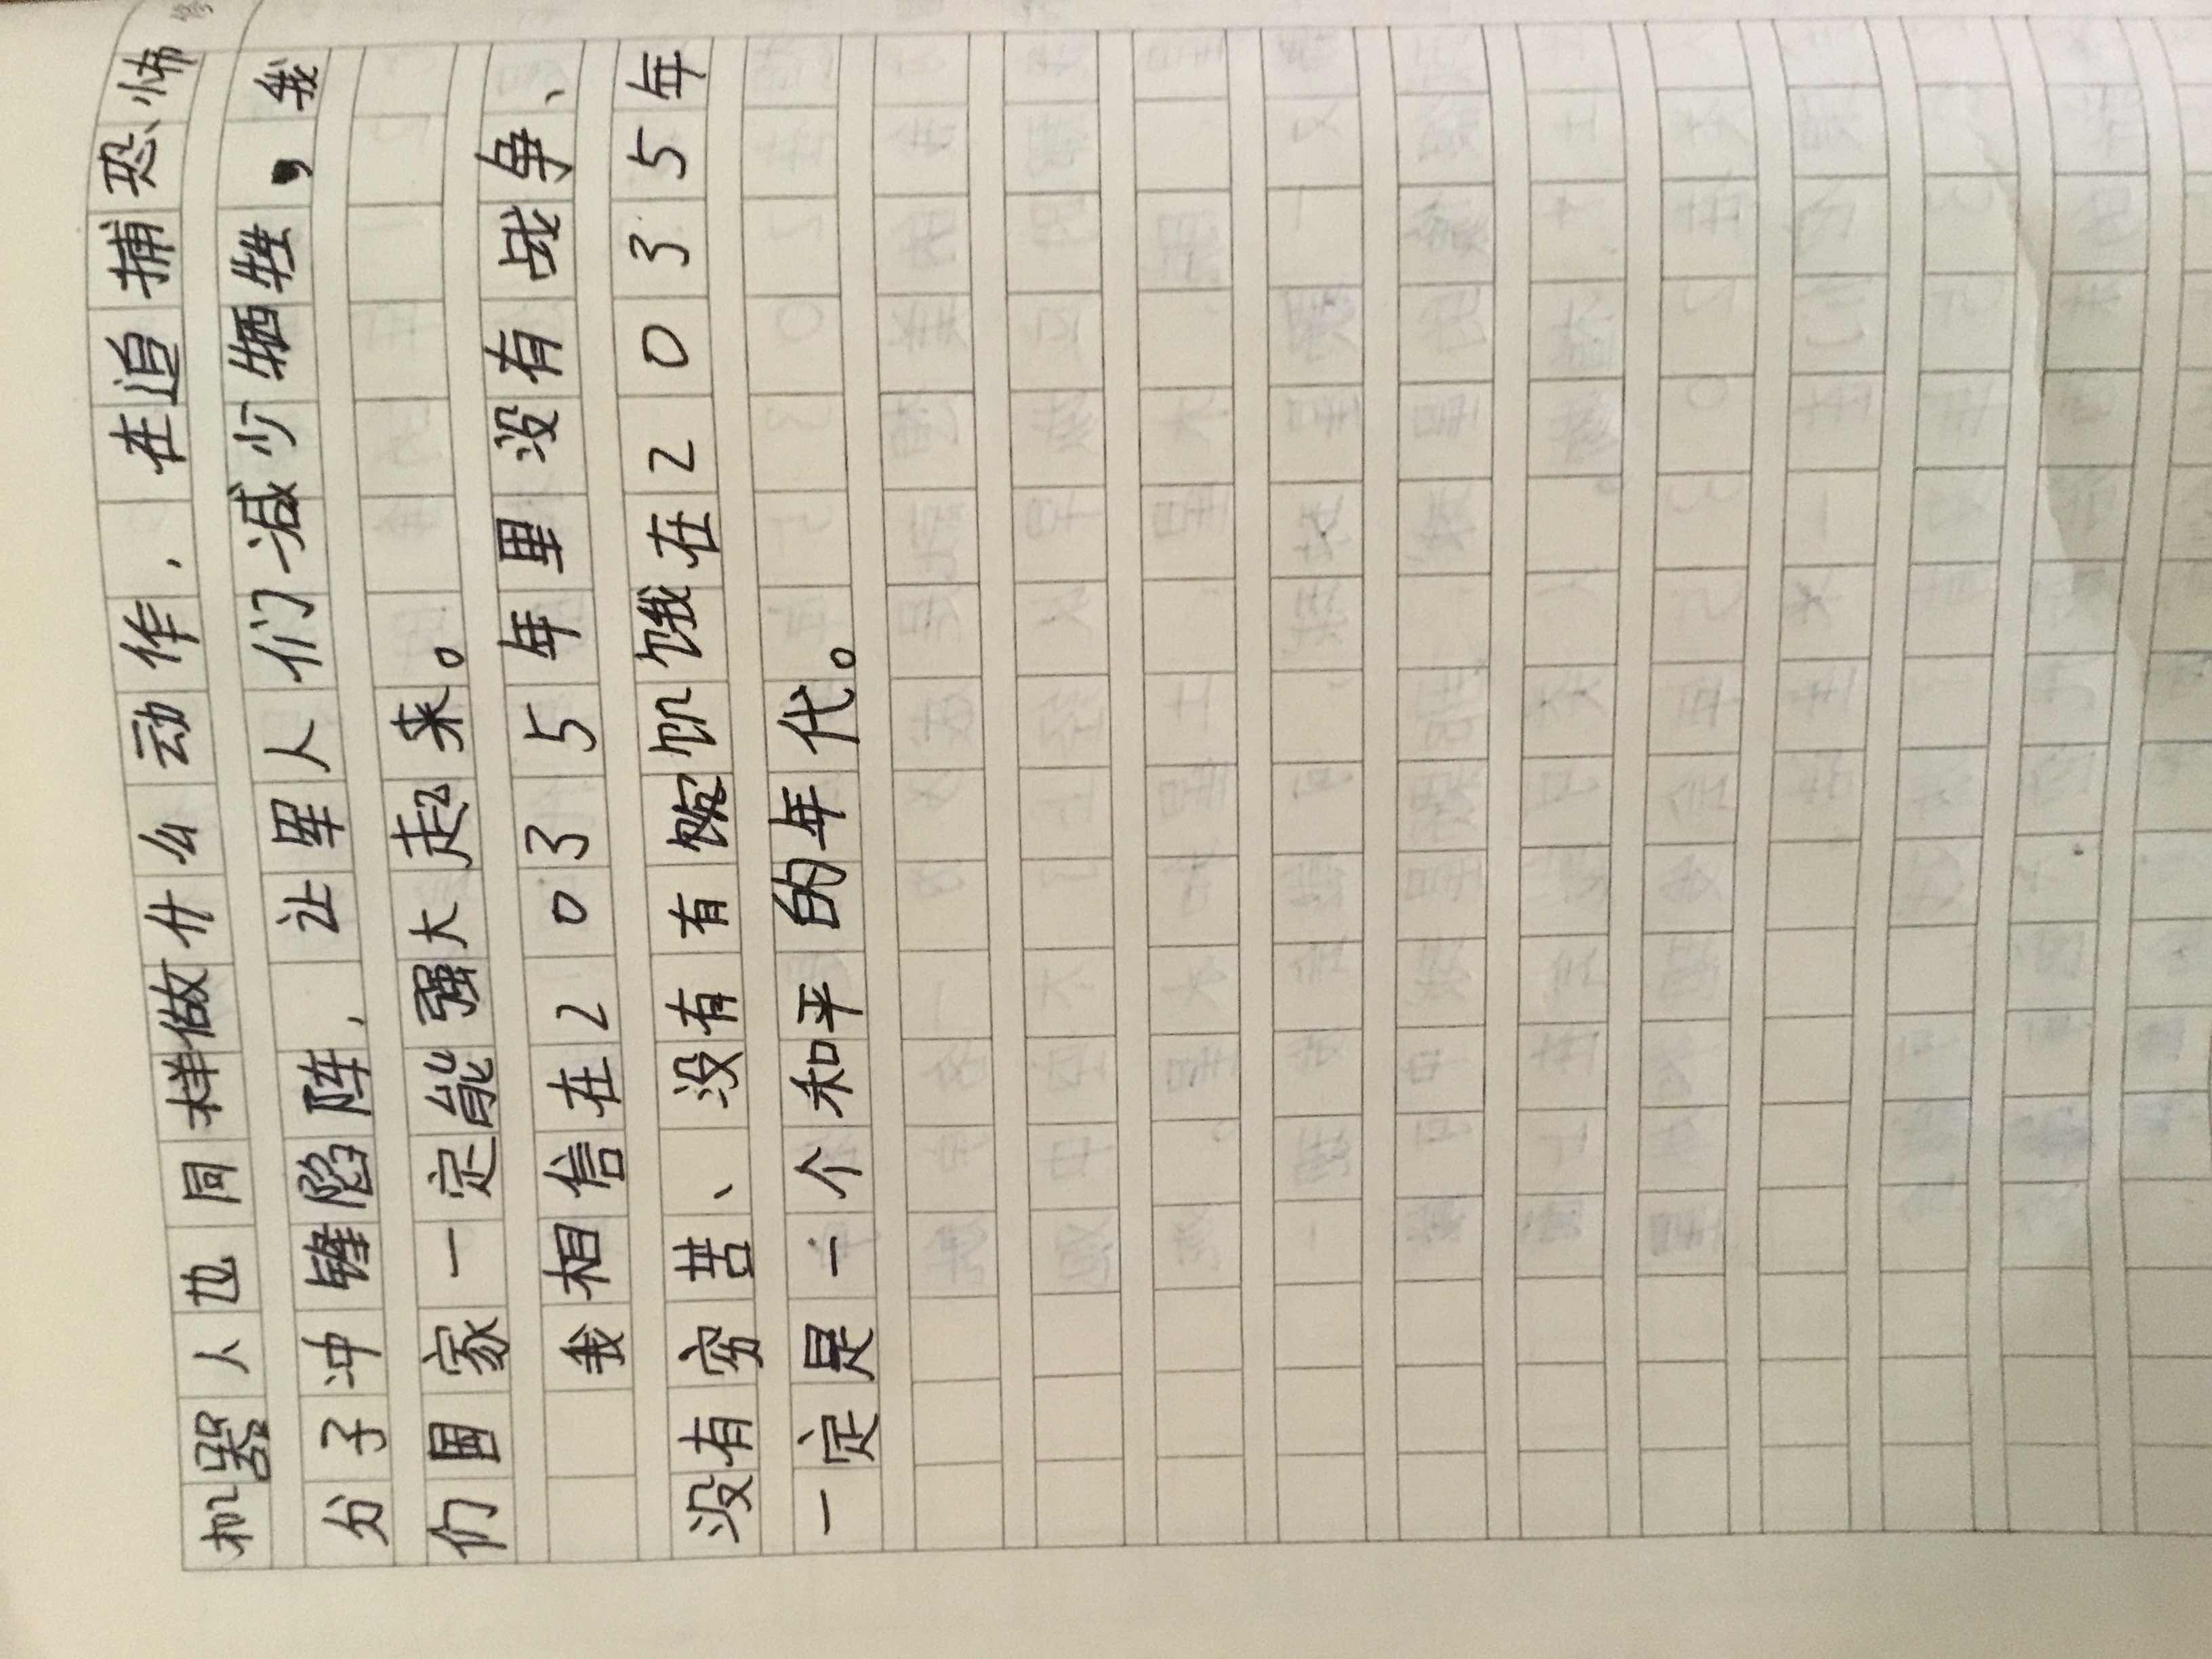 机器人也同样做什么动作,在追捕恐怖
分子冲锋陷阵,让军人们减少牺牲,我
们国家一定能强大起来。
我相信在2035年里没有战争、
没有穷苦、没有饥饿在2035年
一定是一个和平的年代。